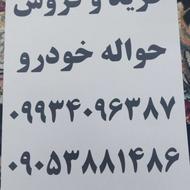 خرید و فروش
حواله خودرو
۰۹۹۳۴۰۹۶۳۸۷
۰۹۰۵۳۸۸۱۴۸۶